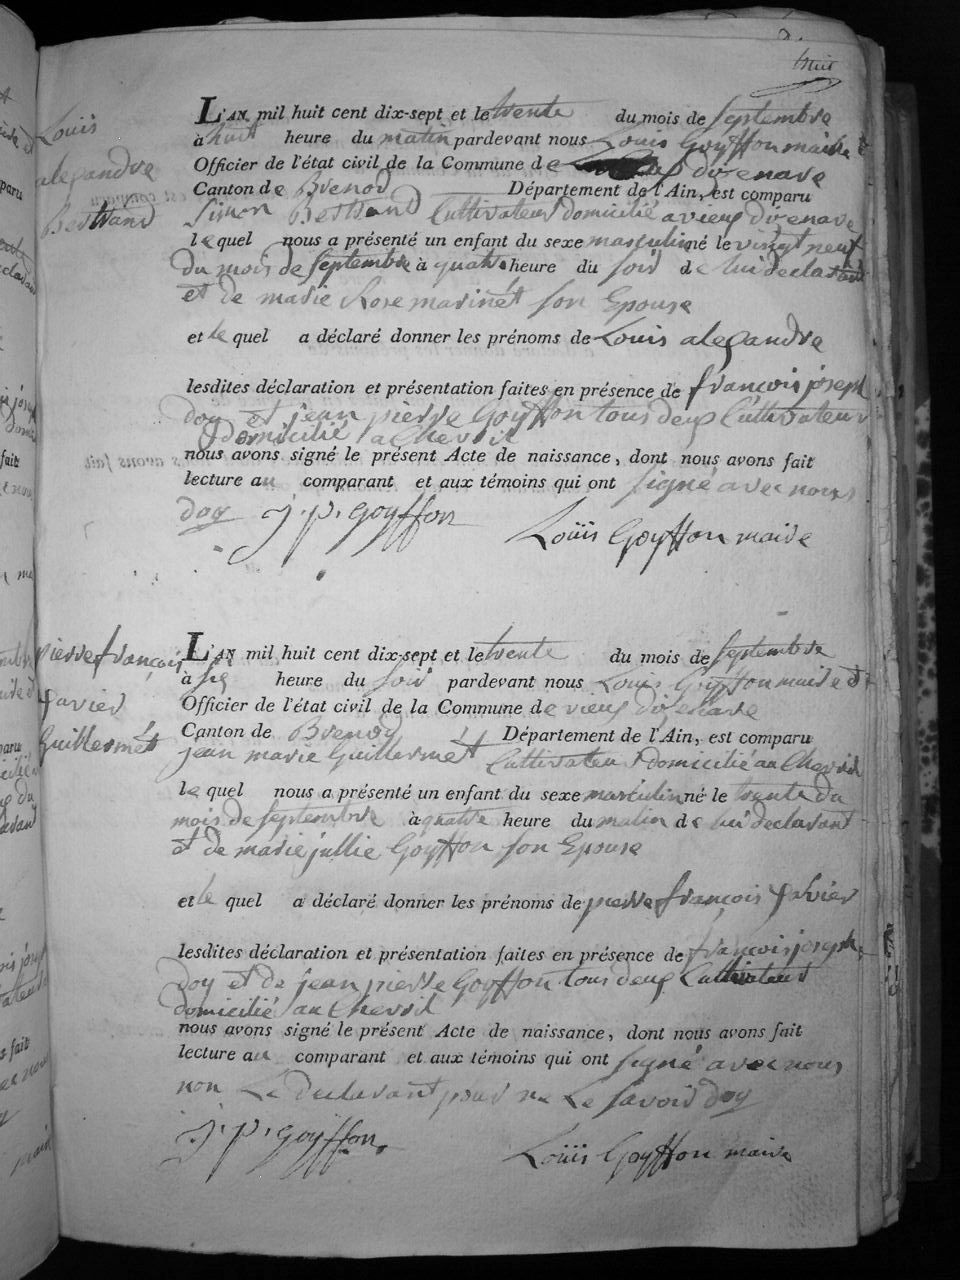 huit
Louis
alexandre
Bertrand
L'AN mil huit cent dix-sept et le trente du mois de septembre
à huit heure du matin pardevant nous Louis Goyffon maire et
Officier de l'état civil de la Commune de vieux d'izenave
Canton de Brenod Département de l'Ain, est comparu
Simon Bertrand Cultivateur domicilié a vieux d'izenave
lequel nous a présenté un enfant du sexe masculin né le vingt neuf
du mois de septembre à quatre heure du soir de lui declarant
et de marie Rose marinét son Epouse
et le quel a déclaré donner les prénoms de Louis alexandre
lesdites déclaration et présentation faites en présence de françois joseph
doy et jean pierre Goyffon tous deux Cultivateur
domicilié a Chevril
nous avons signé le présent Acte de naissance, dont nous avons fait
lecture au comparant et aux témoins qui ont signé avec nous
doy J. p. goyffon Louis Goyffon maire
pierre françois
xavier
Guillermét
L'AN mil huit cent dix-sept et le trente du mois de septembre
à six heure du soir pardevant nous Louis Goyffon maire et
Officier de l'état civil de la Commune de vieux dizenave
Canton de Brenod Département de l'Ain, est comparu
jean marie Guillermét Cultivateur domicilié au Chevril
le quel nous a présenté un enfant du sexe masculin né le trente du
mois de septembre à quatre heure du matin de lui declarant
et de marie jullie Goyffon son Epouse
et le quel a déclaré donner les prénoms de pierre françois xavier
lesdites déclaration et présentation faites en présence de françois joseph
doy et de jean pierre Goyffon tous deux Cultivateur
domicilié au Chevril
nous avons signé le présent Acte de naissance, dont nous avons fait
lecture au comparant et aux témoins qui ont signé avec nous
non Le Declarant pour ne Le savoir doy
J. p. goyffon Louis Goyffon maire